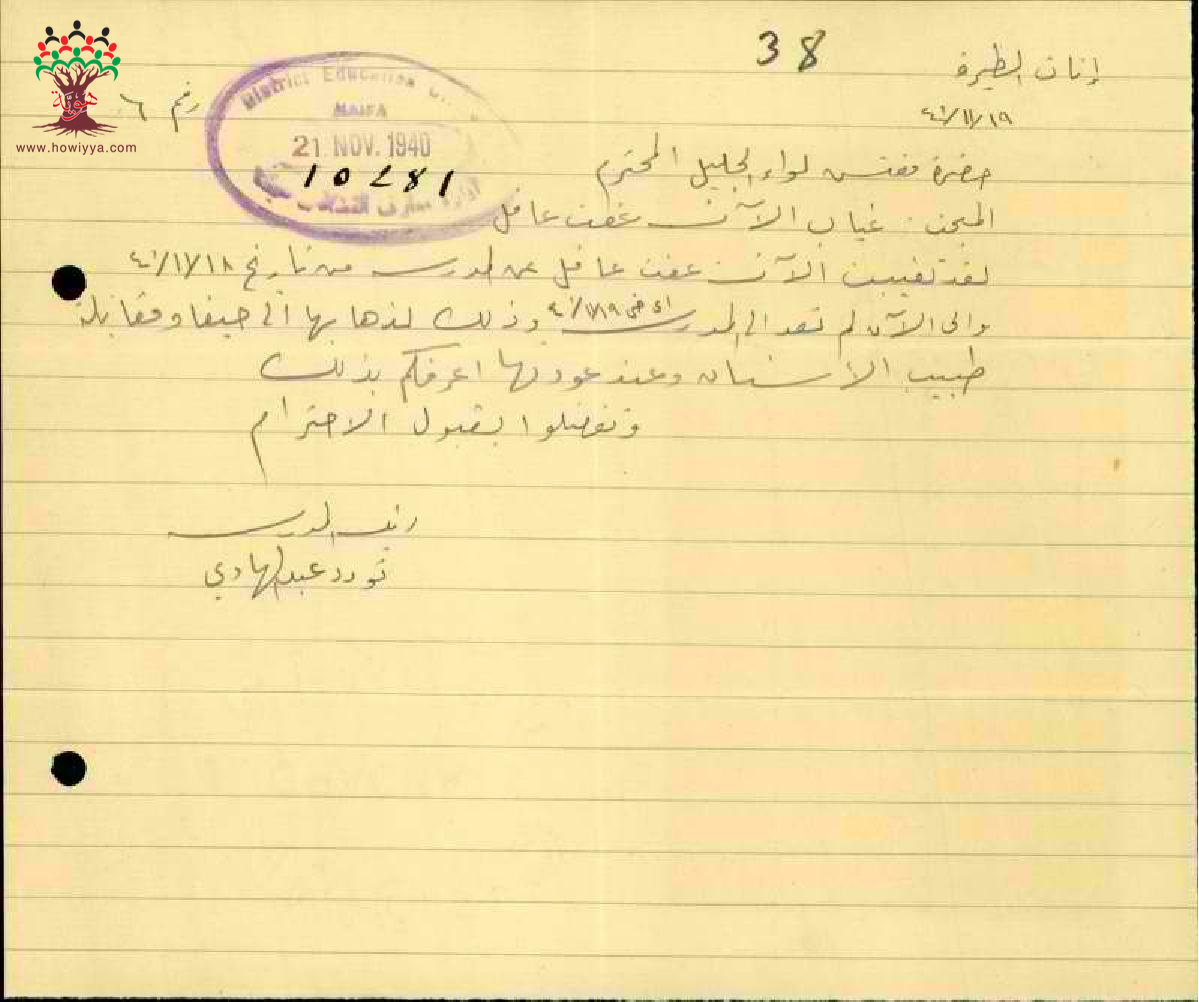 38
إناث الطيرة
٤٠/١١/١٩
رقم ٦
هوية
www.howiyya.com
District Education
HAIFA
21 NOV. 1940
10281
حضرة مفتش لواء الجليل المحترم
المبحث: غياب الآنسة عفت عاقل
لقد تغيبت الآنسة عفت عاقل عن المدرسة من تاريخ ٤٠/١١/١٨
والى الآن لم تعد الى المدرسة اي في ٤٠/١١/١٩ وذلك لذهابها الى حيفا ومقابلة
طبيب الأسنان وعند عودتها اعرفكم بذلك
وتفضلوا بقبول الاحترام
رئيسة المدرسة
تودد عبد الهادي